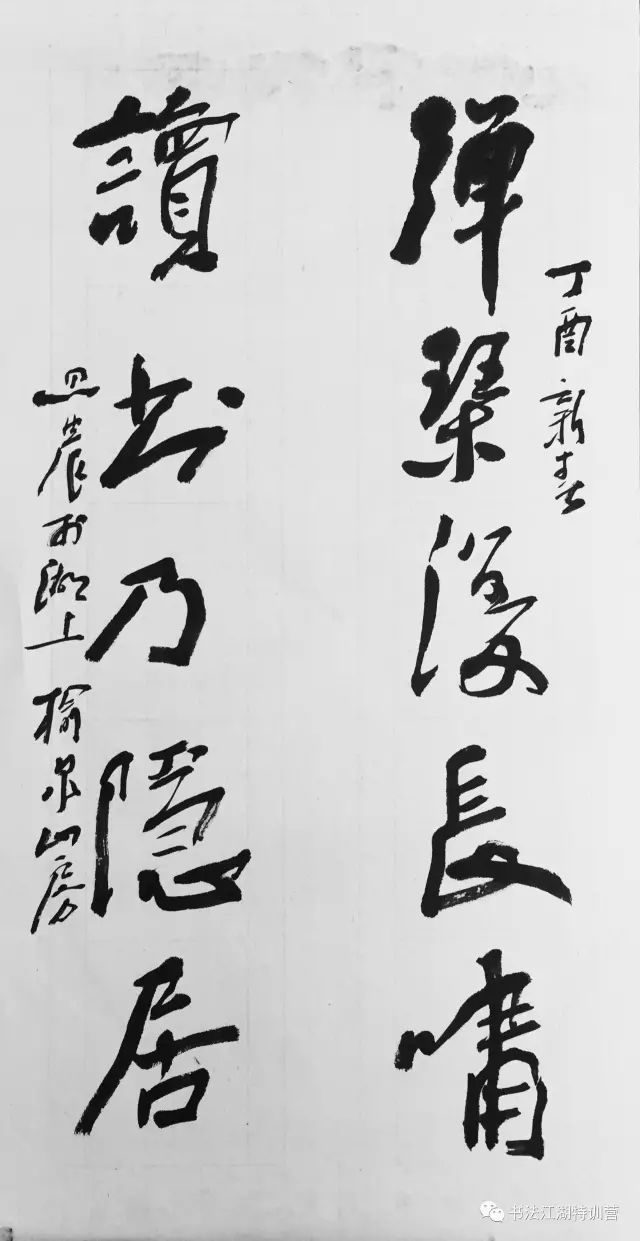 丁酉新春
彈琴復長嘯
讀书乃隱居
晨於湖上榆泉山房
书法江湖特训营